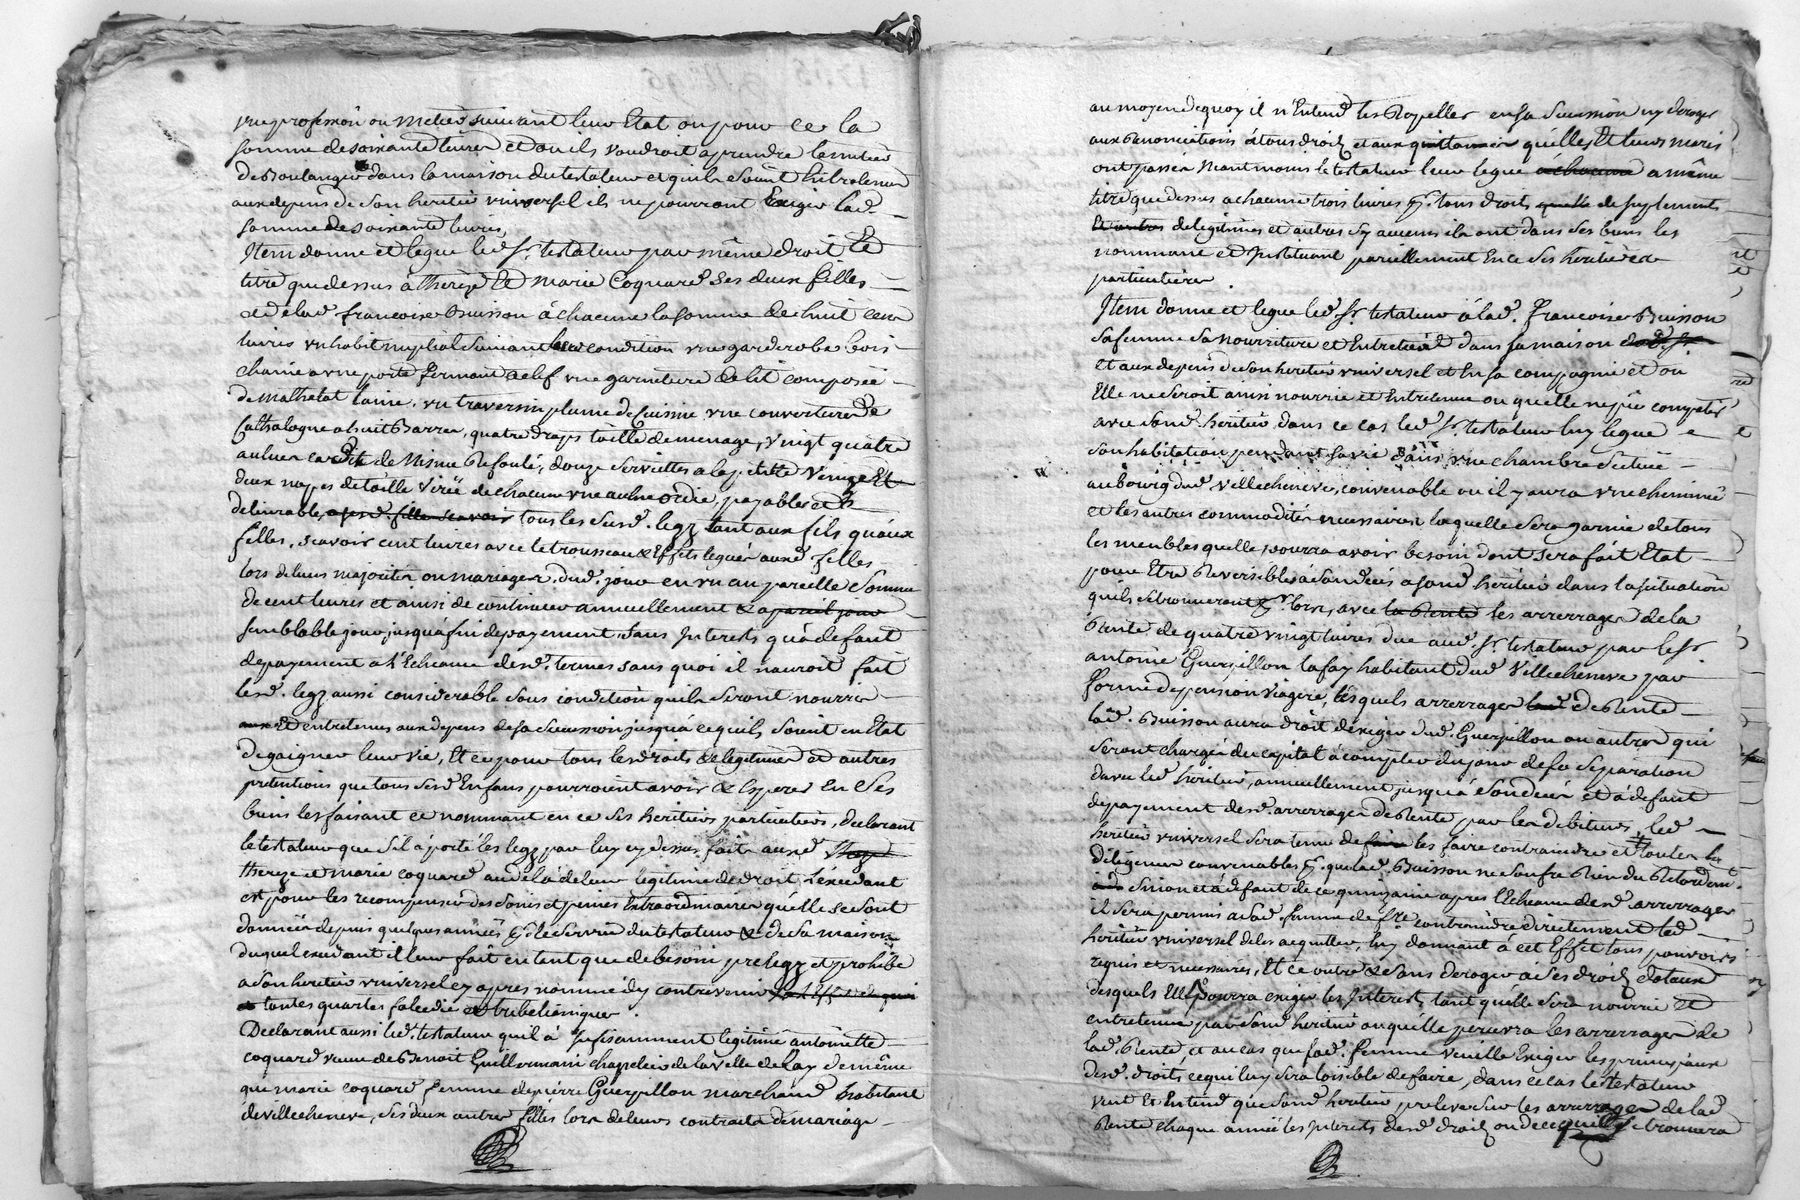 une profession ou metier suivant leur Etat ou pour ce la
somme de soixante livres et ou ils voudroit aprendre le metier
de Boulanger dans la maison du testateur et quils soient Entretenus
aux depens de son heritier universel ils ne pourront Exiger lad.
somme de soixante livres,
Item donne et legue led. Sr. testateur par même droit Et
titre que dessus a thereze Et marie Coquard ses deux filles
et de lad. francoise Buisson à chacune la somme de huit cent
livres un habit nuptial suivant leur condition une garderobe bois
chaine a une porte fermant a clef une garniture de lit composée
de mathelat laine, un traversin plume de Cuissine une couverture de
Cathalogne a huit Barres, quatre draps toille de menage, vingt quatre
aulnes de Nisme Refoulé, douze serviettes a la petitte Venize Et
deux napes de toille Virée de chacune une aulne, payables et
delivrable, apres d. filles scavoir tous les susd. legz tant aux fils qu'aux
filles, scavoir cent livres avec le trousseau & Effets legués auxd. filles
lors de leurs majorités ou mariages, dud. jour en un an pareille somme
de cent livres et ainsi de continuer annuellement & a pareil jour
semblable jour jusqu'a fin de payement, sans Interests qu'a defaut
de payement a l'Echeance desd. termes sans quoi il n'auroit fait
lesd. legz aussi considerable sous condition quils seront nourris
aux Et entretenus aux depens de sa succession jusqu'a ce quils soient en Etat
de gaigner leur vie, Et ce pour tous les droits de legitimes et autres
pretentions que tous sesd. Enfans pourroient avoir & Esperer En ses
biens les faisant et nommant en ce ses heritiers particuliers, declarant
le testateur que s'il à porté les legz par luy cy dessus faits auxd. thez
thereze et marie coquard au dela de leur legitime de droit, l'excedant
est pour les recompenser des soins et peines Extraordinaires qu'elle se sont
données depuis quelques années pr. le service du testateur & de sa maison
duquel excedant il leur fait en tent que de besoin prelegz et prohibe
a son heritier universel cy apres nommé d'y contrevenir
toutes quartes falcedie et trebelianique.
Declarant aussi led. testateur qu'il à sufisamment legitimé antoinette
coquard veuve de Benoit Guillermain chapelier de la ville de Lay de même
que marie coquard femme de pierre Guerpillon marchand habitant
de villecheneve, ses deux autres filles lors de leurs contrats de mariage
au moyen de quoy il n'Entend les Rapeller en sa succession ny deroger
aux Renonciations à tous droits et aux quittances qu'elles Et leurs maris
ont passés Neant moins le testateur leur legue à chacune a même
titre que dessus a chacune trois livres pr. tous droits quelle de suplements
Et autres de legitimes et autres sy aucuns ils ont dans ses biens les
nommant et Instituant pareillement En ce ses heritiers
particuliers.
Item donne et legue led. Sr. testateur à lad. francoise Buisson
sa femme sa nourriture et Entretient dans sa maison dud. Sr.
Et aux depens de son heritier universel et En sa compagnie et ou
Elle ne seroit ainsi nourrie et Entretenue ou quelle ne put compatir
avec sond. heritier, dans ce cas led. Sr. testateur luy legue
son habitation pendant sa vie dans une chambre scituée
au bourg dud. Villecheneve, convenable ou il y aura une cheminée
et les autres commodités necessaires laquelle sera garnie de tous
les meubles quelle pourra avoir besoin dont sera fait Etat
pour Etre Reversibles à son deces a sond. heritier dans la situation
quils se trouveront pr. lors, avec la Rente les arrerrages de la
Rente de quatre vingt livres due aud. Sr. testateur par le Sr.
antoine Guerpillon lafay habitant dud. Villecheneve par
forme de pension viagere, lesquels arrerrages de Rente
lad. Buisson aura droit d'exiger dud. Guerpillon ou autres qui
seront chargés du capital à compter du jour de sa separation
d'avec led. heritier, annuellement jusqu'à son deces et à defaut
de payement desd. arrerrages de Rente, par les debiteurs, led.
heritier universel sera tenu de faire les faire contraindre et toutes les
diligences convenables pr. que lad. Buisson ne soufra Rien du Retardement.
Sinon et à defaut de ce quinzaine apres l'Echeance desd. arrerrages
il sera permis a sad. femme de fre. contraindre directement led.
heritier universel de les acquitter, luy donnant à cet Effet tous pouvoirs
requis et necessaires, Et ce outre & sans deroger à ses droits dotaux
desquels Elle pourra exiger les Interets tant qu'elle sera nourrie Et
entretenue par sond. heritier ou qu'elle percevra les arrerrages de
lad. Rente, et au cas que sad. femme veuille Exiger les principaux
desd. droits ce qui luy sera loisible de faire, dans ce cas le testateur
veut Et Entend que sond. heritier preleve sur les arrerrages de lad.
Rente chaque année les Interets desd. droits ou de ce quil se trouvera